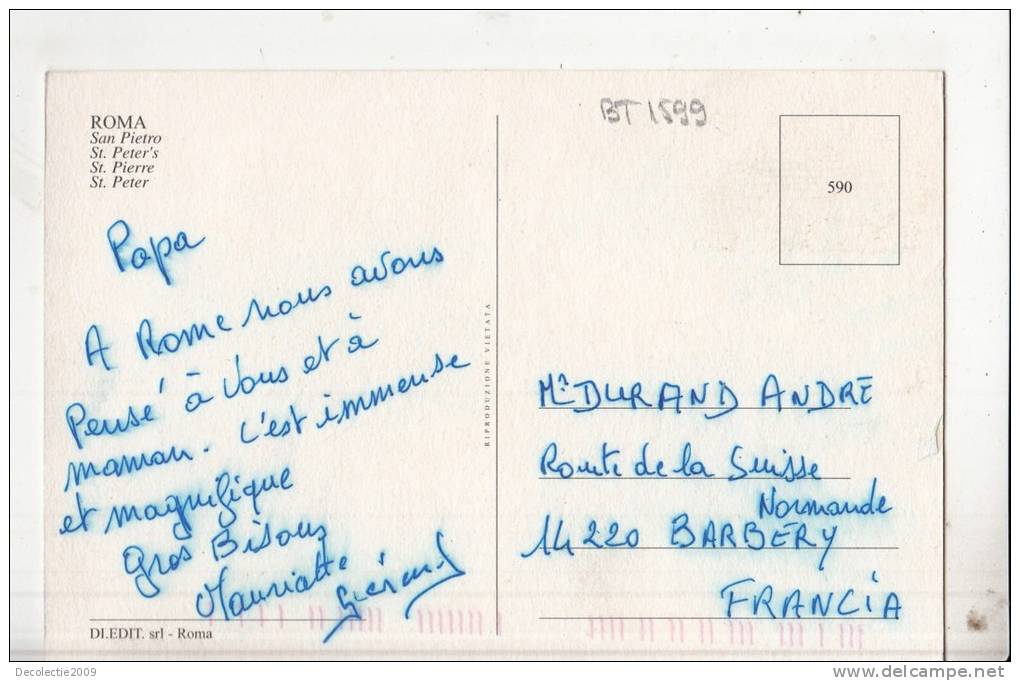 BT 1599
ROMA
San Pietro
St. Peter's
St. Pierre
St. Peter
590
Papa
A Rome nous avons
Pensé à vous et à
maman. C'est immense
et magnifique
Gros Bisous
Mauricette
Gérard
RIPRODUZIONE VIETATA
Mr DURAND ANDRE
Route de la Suisse
Normande
14220 BARBERY
FRANCIA
DI.EDIT. srl - Roma
Decolectie2009
delcampe.net